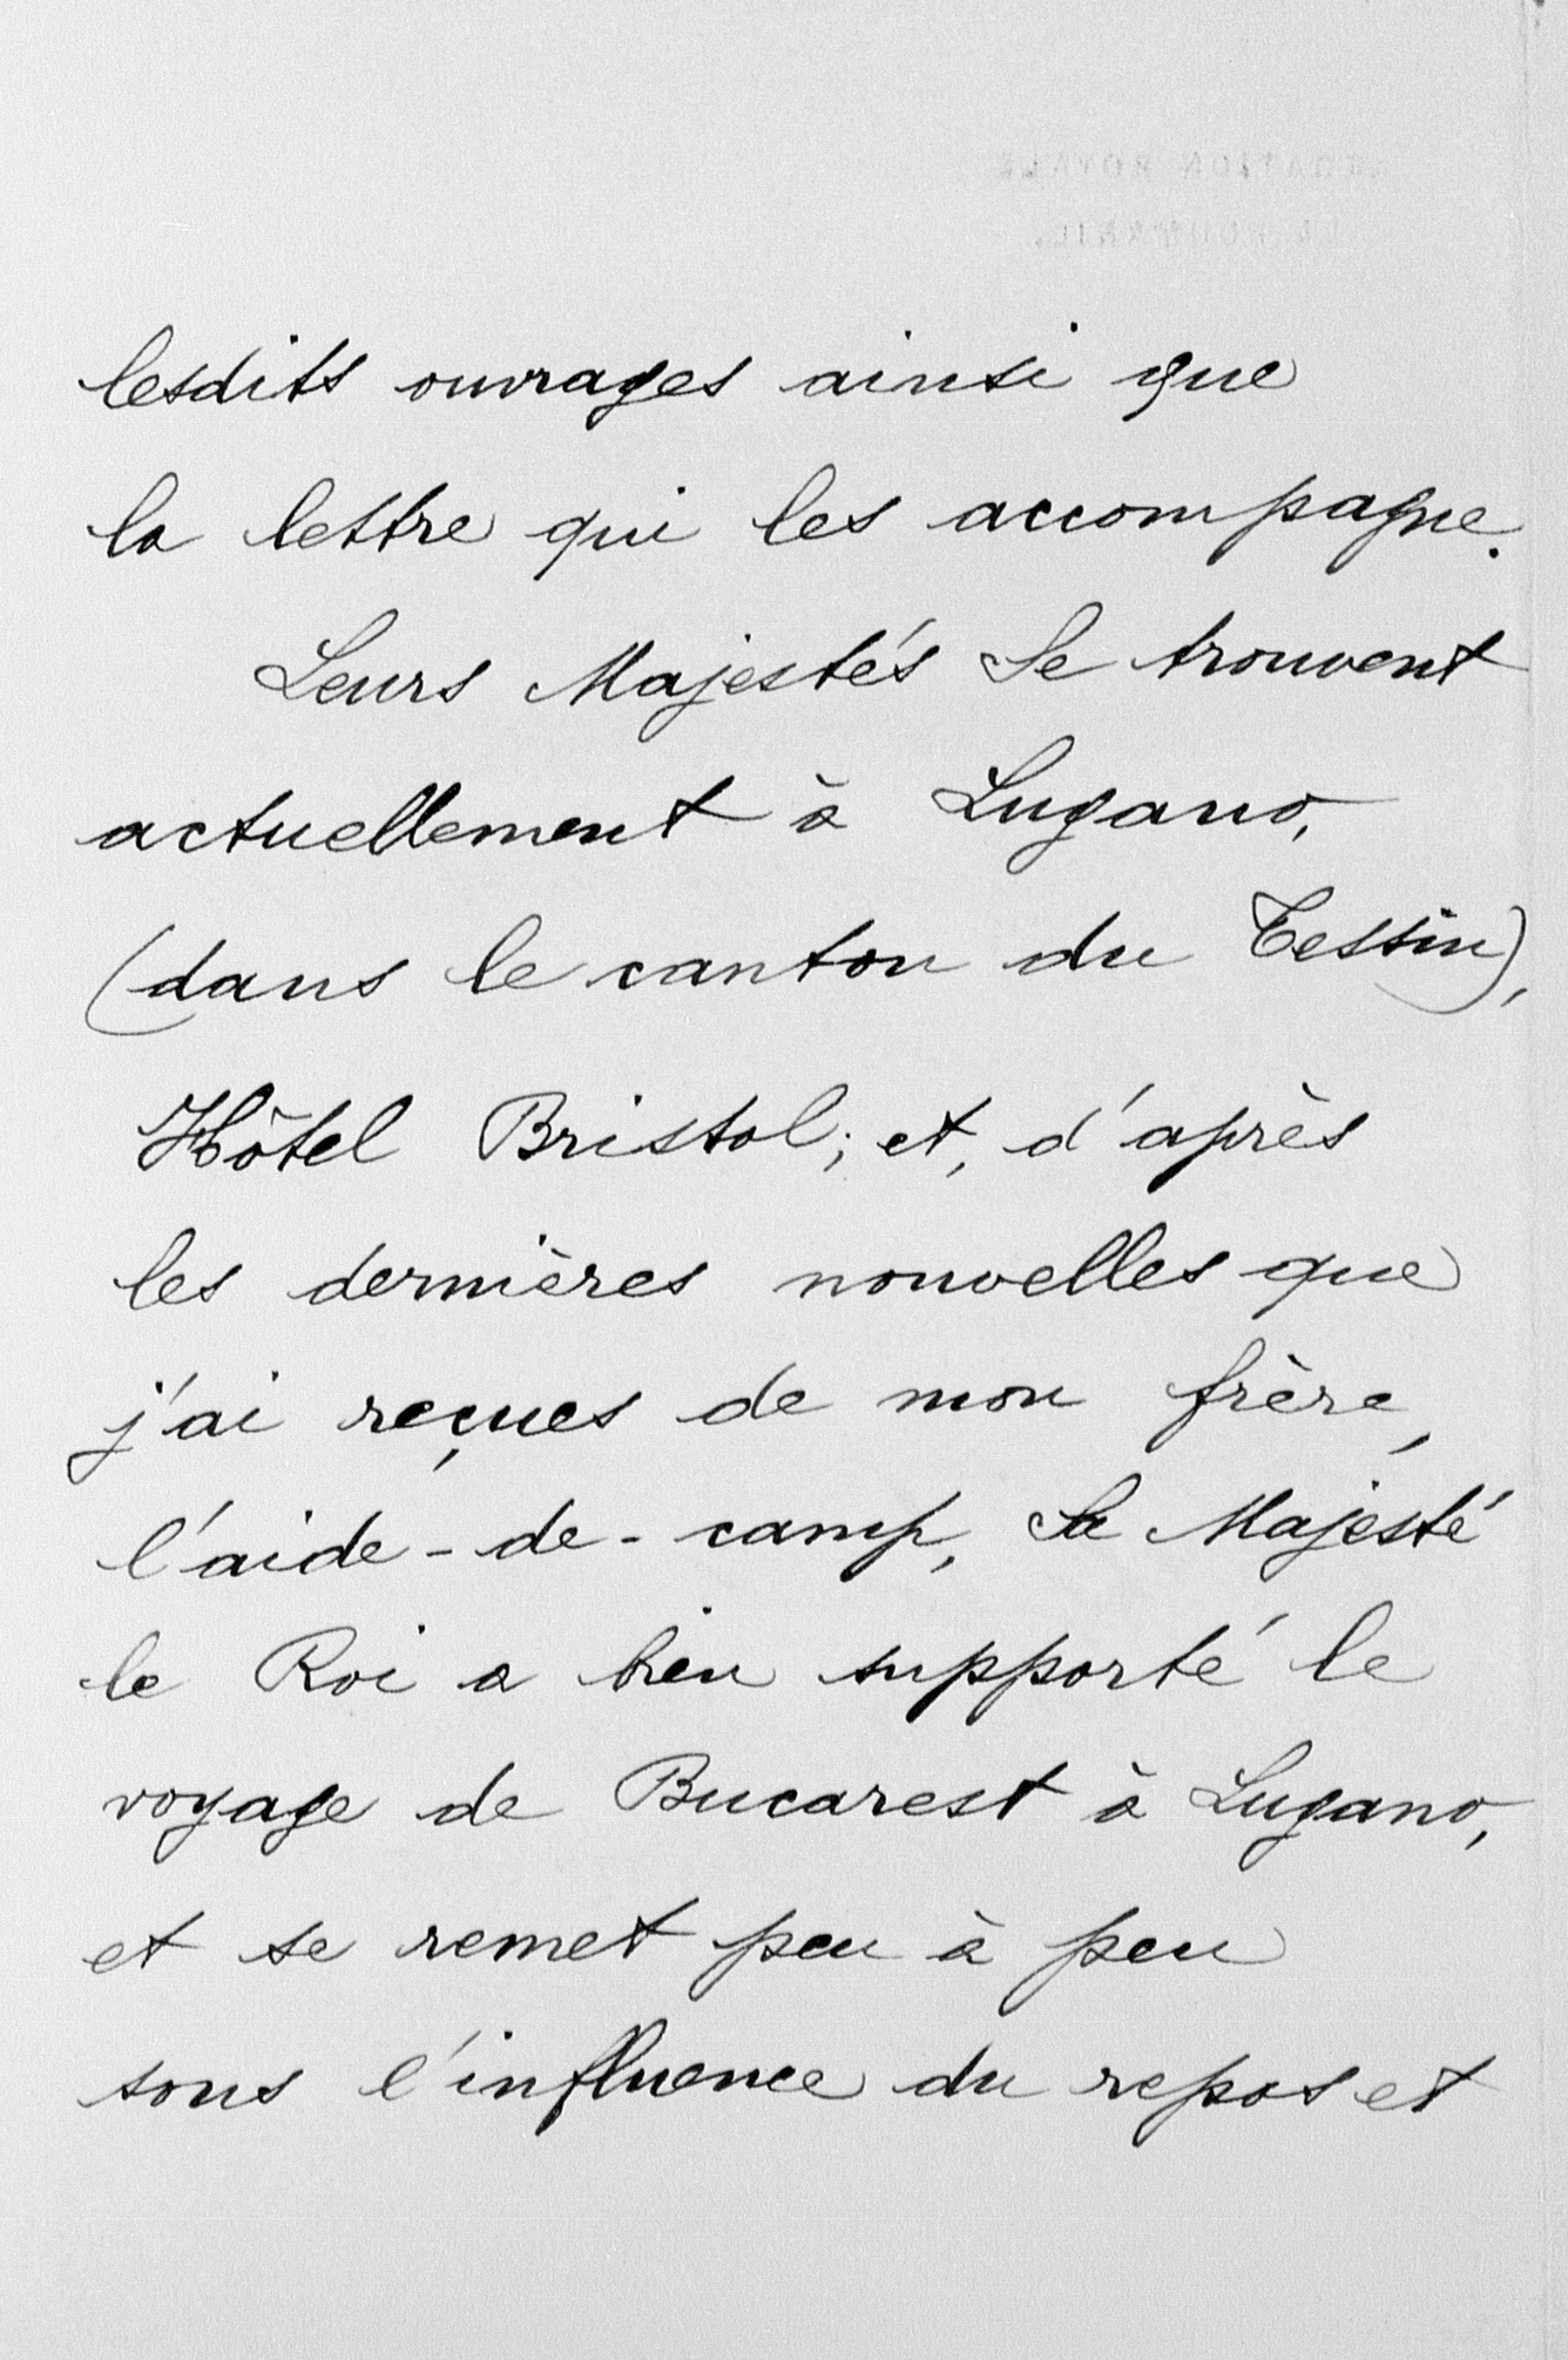 lesdits ouvrages ainsi que
la lettre qui les accompagne.
Leurs Majestés Se trouvent
actuellement à Lugano,
(dans le canton du Tessin),
Hôtel Bristol; et, d'après
les dernières nouvelles que
j'ai reçues de mon frère,
l'aide-de-camp, Sa Majesté
le Roi a bien supporté le
voyage de Bucarest à Lugano,
et se remet peu à peu
sous l'influence du repos et